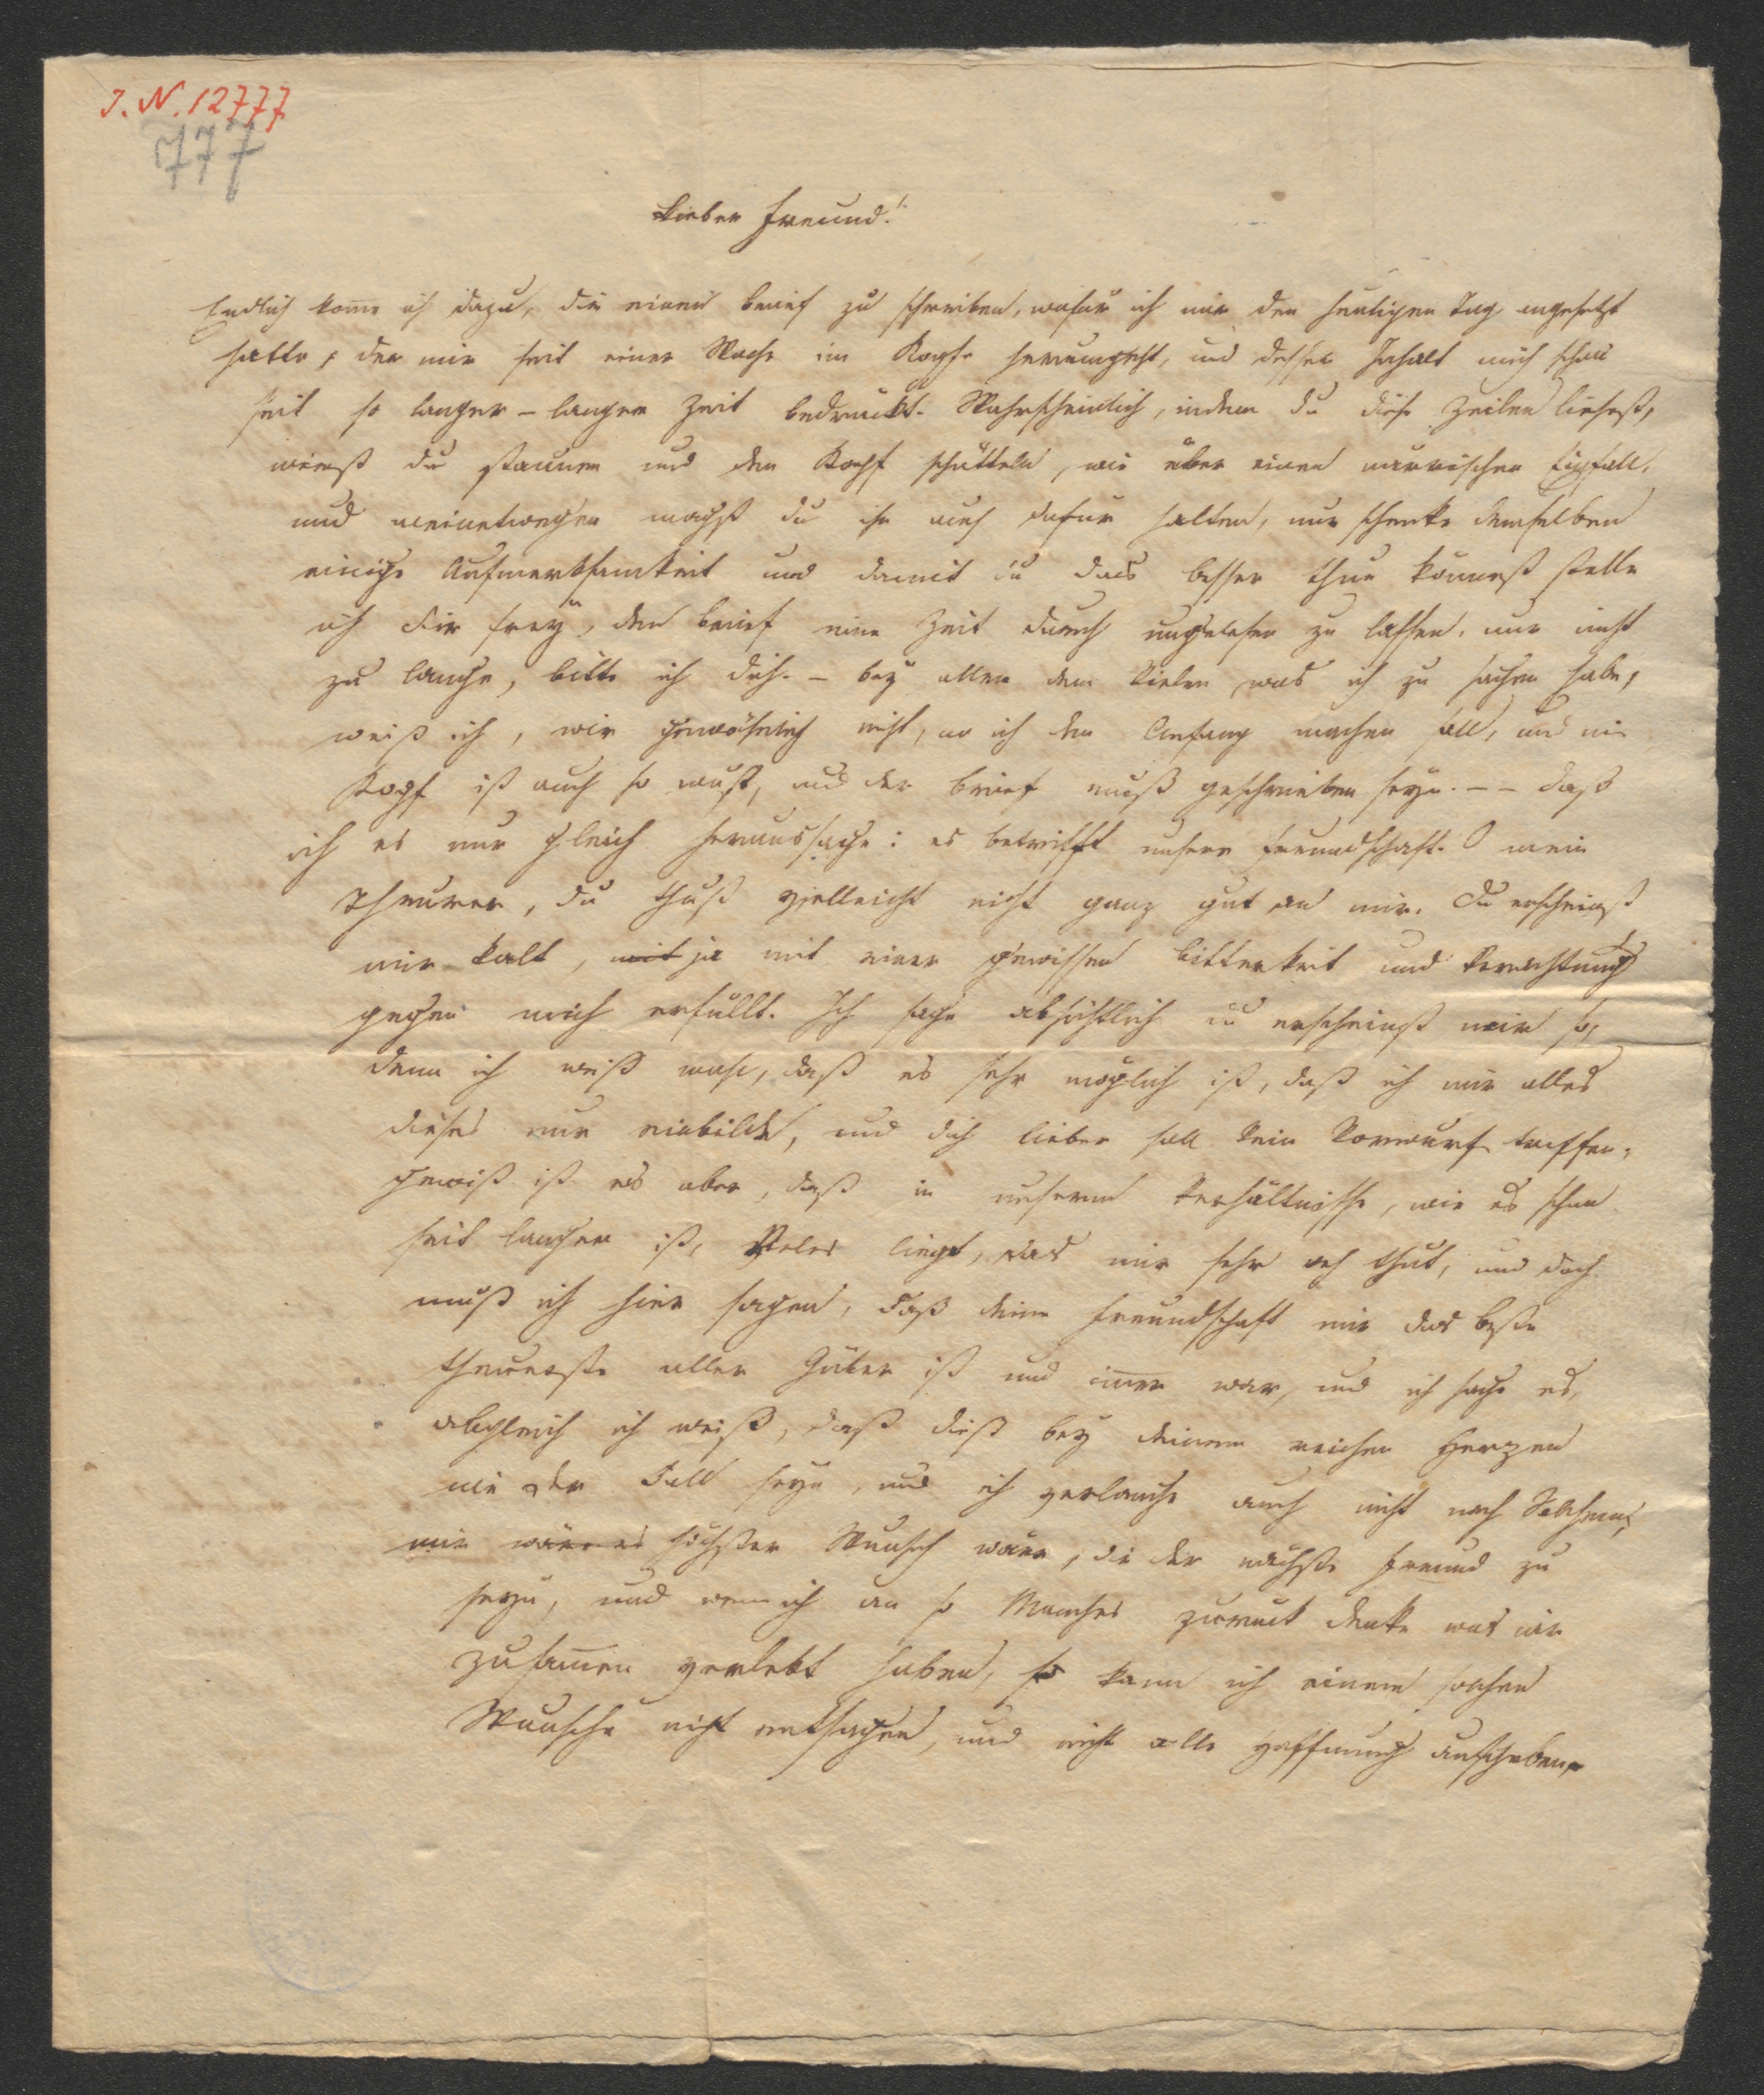 I. N. 12777
777
Lieber Freund!
Endlich kom̄e ich dazu, dir einen Brief zu schreiben, wofür ich mir den heutigen Tag angesetzt
hatte, der mir seit einer Woche im Kopfe herumgeht, und dessen Inhalt mich schon
seit so langer – langer Zeit bedrückt. Wahrscheinlich, indem du diese Zeilen liesest,
wirst du staunen und den Kopf schütteln, wie über einen närrischen Einfall,
und meinetwegen magst du ihn auch dafür halten, nur schenke demselben
einige Aufmerksamkeit und damit du das besser thun kön̄est stelle
ich dir frey, den Brief eine Zeit durch ungelesen zu lassen, nur nicht
zu lange, bitte ich dich. – Bey allem dem Vielen was ich zu sagen habe,
weiß ich, wie gewöhnlich nicht, wo ich den Anfang machen soll, und mein
Kopf ist auch so wüst, und der Brief muß geschrieben seyn. – – Daß
ich es nur gleich heraussage: es betrifft unsere Freundschaft. O mein
Theurer, du thust vielleicht nicht ganz gut an mir. Du erscheinst
mir kalt, mit ja mit einer gewissen Bitterkeit und Verachtung
gegen mich erfüllt. Ich sage absichtlich du erscheinst mir so,
denn ich weiß wohl, daß es sehr möglich ist, daß ich mir alles
dieses nur einbilde, und dich lieber soll kein Vorwurf treffen,
gewiß ist es aber, daß in unserem Verhältnisse, wie es schon
seit langem ist, Vieles liegt, das mir sehr weh thut, und doch
muß ich hier sagen, daß deine Freundschaft mir das beste
theuerste aller Güter ist und im̄er war, und ich sage es,
obgleich ich weiß, daß dieß bey deinem reichen Herzen
nie der Fall seyn, und ich verlange auch nicht nach Solchem,
mir wäre es höchster Wunsch wäre, dir der nächste Freund zu
seyn, und wenn ich an so Manches zurück denke was wir
zusam̄en verlebt haben, so kann ich einem solchen
Wunsche nicht entsagen, und nicht alle Hoffnung aufgeben,